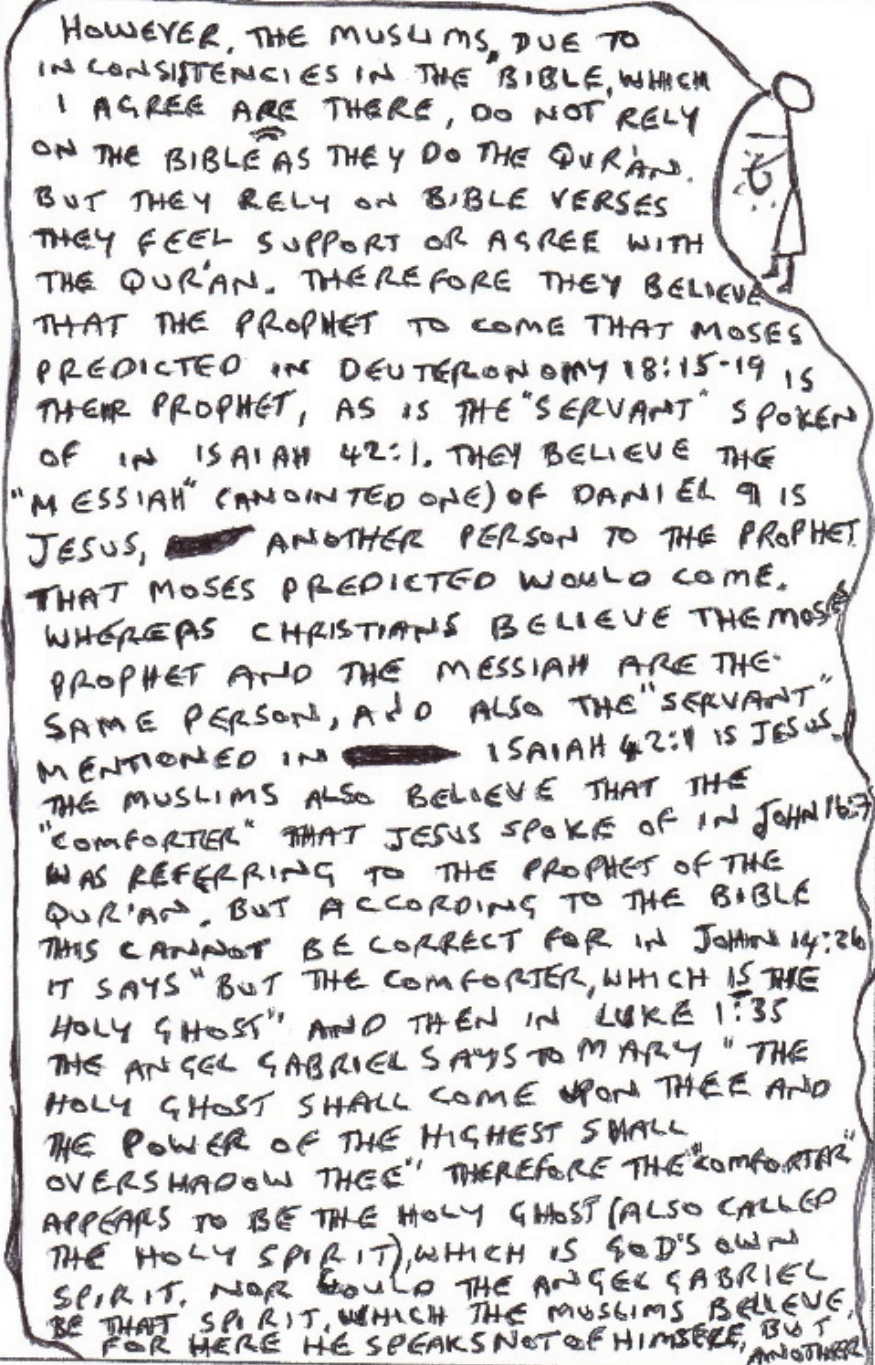 HOWEVER, THE MUSLIMS, DUE TO
INCONSISTENCIES IN THE "BIBLE, WHICH
I AGREE ARE THERE, DO NOT RELY
ON THE BIBLE AS THEY DO THE QUR'AN.
BUT THEY RELY ON BIBLE VERSES
THEY FEEL SUPPORT OR AGREE WITH
THE QUR'AN. THEREFORE THEY BELIEVE
THAT THE PROPHET TO COME THAT MOSES
PREDICTED IN DEUTERONOMY 18:15-19 IS
THEIR PROPHET, AS IS THE "SERVANT" SPOKEN
OF IN ISAIAH 42:1. THEY BELIEVE THE
"MESSIAH" (ANOINTED ONE) OF DANIEL 9 IS
JESUS, ANOTHER PERSON TO THE PROPHET
THAT MOSES PREDICTED WOULD COME.
WHEREAS CHRISTIANS BELIEVE THE MOSES
PROPHET AND THE MESSIAH ARE THE
SAME PERSON, AND ALSO THE "SERVANT"
MENTIONED IN ISAIAH 42:1 IS JESUS.
THE MUSLIMS ALSO BELIEVE THAT THE
"COMFORTER" THAT JESUS SPOKE OF IN JOHN 16:7
WAS REFERRING TO THE PROPHET OF THE
QUR'AN. BUT ACCORDING TO THE BIBLE
THIS CANNOT BE CORRECT FOR IN JOHN 14:26
IT SAYS "BUT THE COMFORTER, WHICH IS THE
HOLY GHOST" AND THEN IN LUKE 1:35
THE ANGEL GABRIEL SAYS TO MARY "THE
HOLY GHOST SHALL COME UPON THEE AND
THE POWER OF THE HIGHEST SHALL
OVERSHADOW THEE" THEREFORE THE "COMFORTER"
APPEARS TO BE THE HOLY GHOST (ALSO CALLED
THE HOLY SPIRIT), WHICH IS GOD'S OWN
SPIRIT. NOR COULD THE ANGEL GABRIEL
BE THAT SPIRIT, WHICH THE MUSLIMS BELIEVE,
FOR HERE HE SPEAKS NOT OF HIMSELF, BUT
ANOTHER